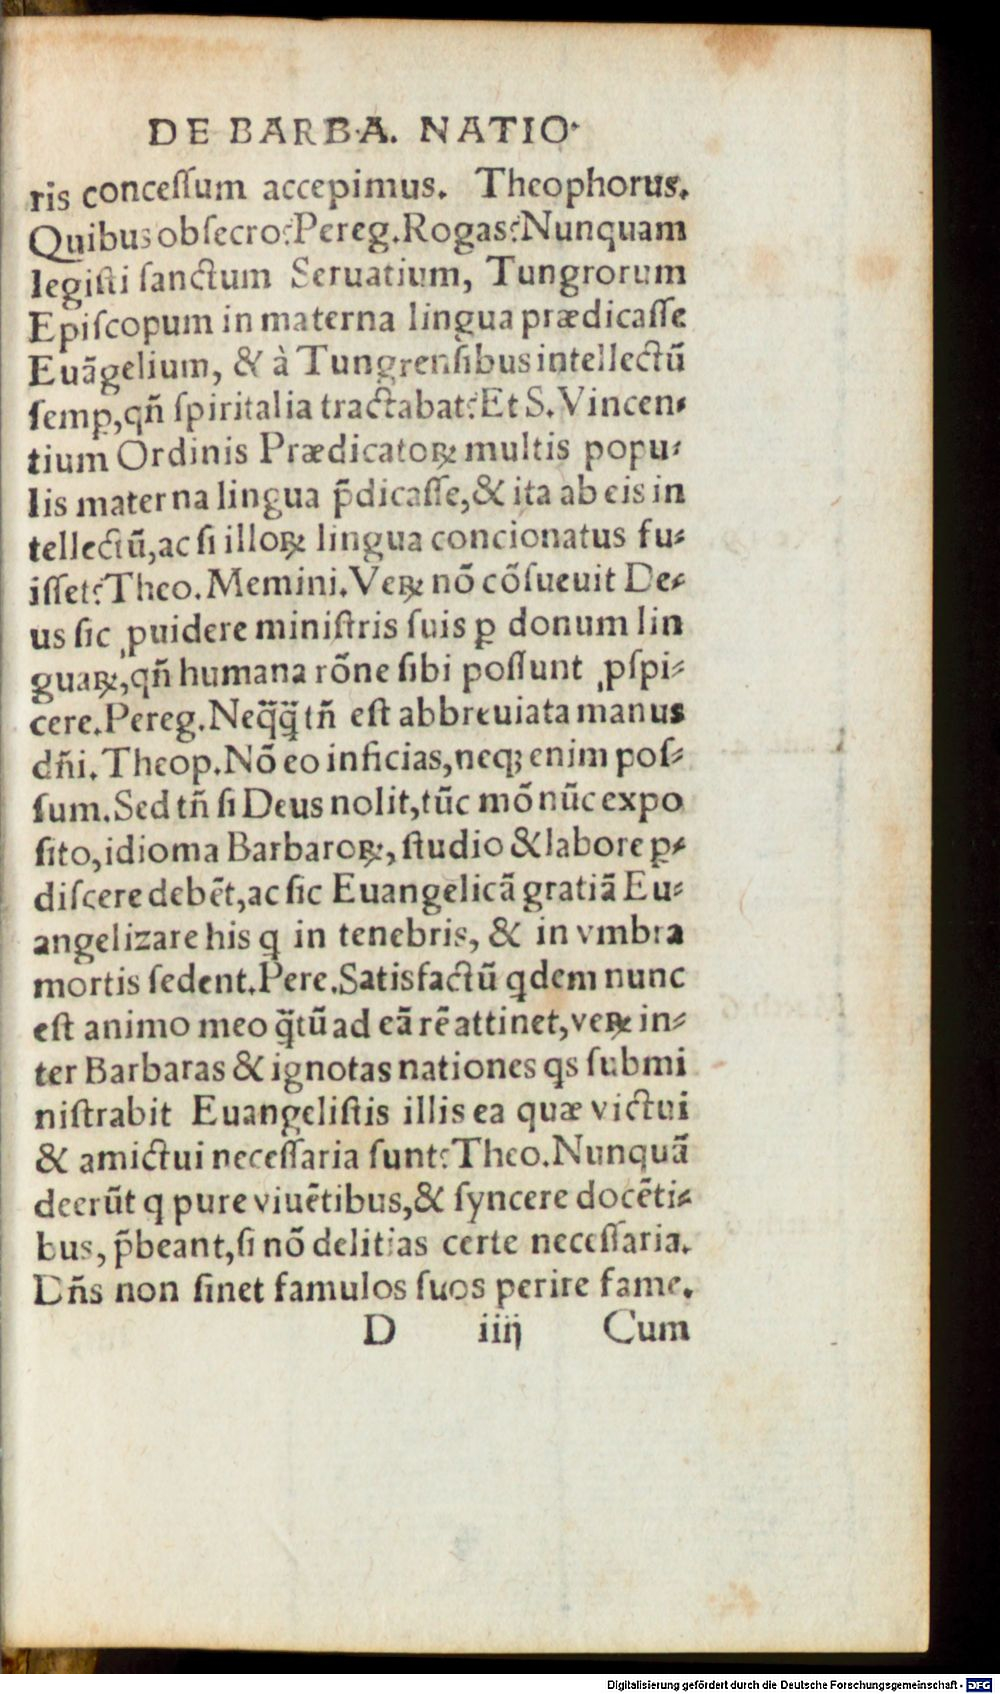 DE BARB·A. NATIO·
ris conceſſum accepimus. Theophorus.
Quibus obſecro? Pereg. Rogas? Nunquam
legiſti ſanctum Seruatium, Tungrorum
Epiſcopum in materna lingua prædicaſſe
Euãgelium, & à Tungrenſibus intellectũ
ſemꝑ, qñ ſpiritalia tractabat? Et S. Vincen-
tium Ordinis Prædicatoꝝ multis popu-
lis materna lingua p̃dicaſſe, & ita ab eis in
tellectũ, ac ſi illoꝝ lingua concionatus fu-
iſſet? Theo. Memini. Veꝝ nõ cõſueuit De-
us ſic ꝓuidere miniſtris ſuis ꝑ donum lin
guaꝝ, qñ humana rõne ſibi poſſunt ꝓſpi-
cere. Pereg. Neq̃q̃ tñ eſt abbreuiata manus
dñi. Theop. Nõ eo inficias, neqꝫ enim poſ-
ſum. Sed tñ ſi Deus nolit, tũc mõ nũc expo
ſito, idioma Barbaroꝝ, ſtudio & labore ꝑ-
diſcere debẽt, ac ſic Euangelicã gratiã Eu-
angelizare his ꝗ in tenebris, & in vmbra
mortis ſedent. Pere. Satisfactũ ꝗdem nunc
eſt animo meo q̃tũ ad eã rẽ attinet, veꝝ in-
ter Barbaras & ignotas nationes qs ſubmi
niſtrabit Euangeliſtis illis ea quæ victui
& amictui neceſſaria ſunt? Theo. Nunquã
deerũt ꝗ pure viuẽtibus, & ſyncere docẽti-
bus, p̃beant, ſi nõ delitias certe neceſſaria.
Dñs non ſinet famulos ſuos perire fame.
D iiij Cum
Digitalisierung gefördert durch die Deutsche Forschungsgemeinschaft - DFG